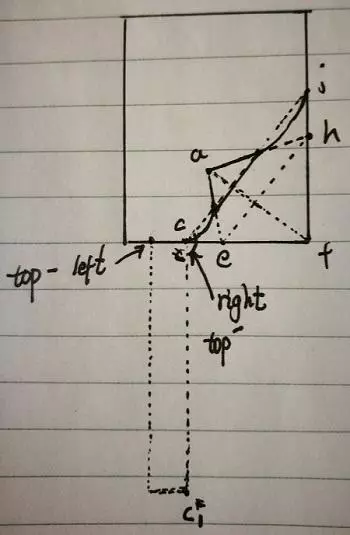 j
h
a
c
c
e
f
top - left
right
top
c₁